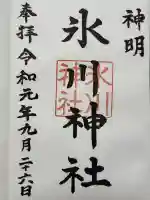 神明
氷川神社
氷川神社
奉拝 令和元年九月二十六日